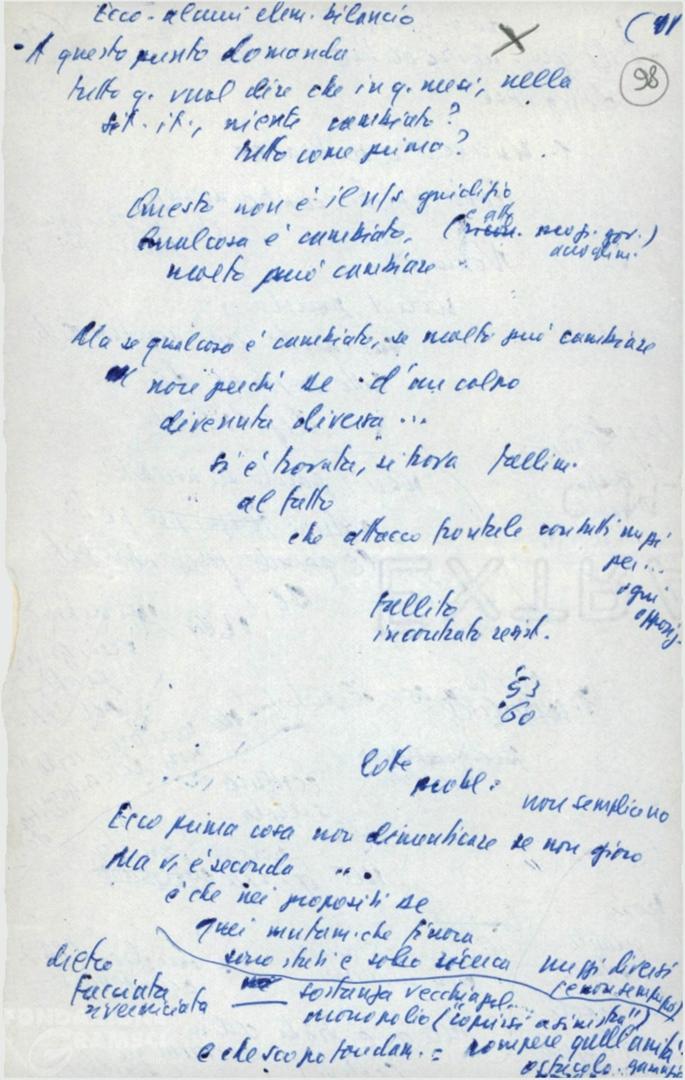 Ecco - alcuni elem. bilancio
98
- A questo punto domanda
tutto q. vuol dire che in q. mesi, nella
sit. it., niente cambiato?
tutto come prima?
Questo non è il n/s giudizio
Qualcosa è cambiato,
molto può cambiare
Ma se qualcosa è cambiato, se molto può cambiare
non perché DC d'un colpo
divenuta diversa ...
si è trovata, si trova
al fatto
che attacco frontale con tutti mezzi
per ...
ogni
fallito
incontrato resist.
'53
'60
lotte
non semplici
Ecco prima cosa non dimenticare se non
Ma vi è seconda
è che nei propositi DC
quei mutam. che finora
sono stati e solo ricerca mezzi diversi
(e non sempre)
dietro
facciata
riverniciata
sostanza vecchia pol.
monopolio ("comizi a sinistra")
e che scopo fondam. = rompere quell'unità
ostacolo
FONDAZIONE
GRAMSCI